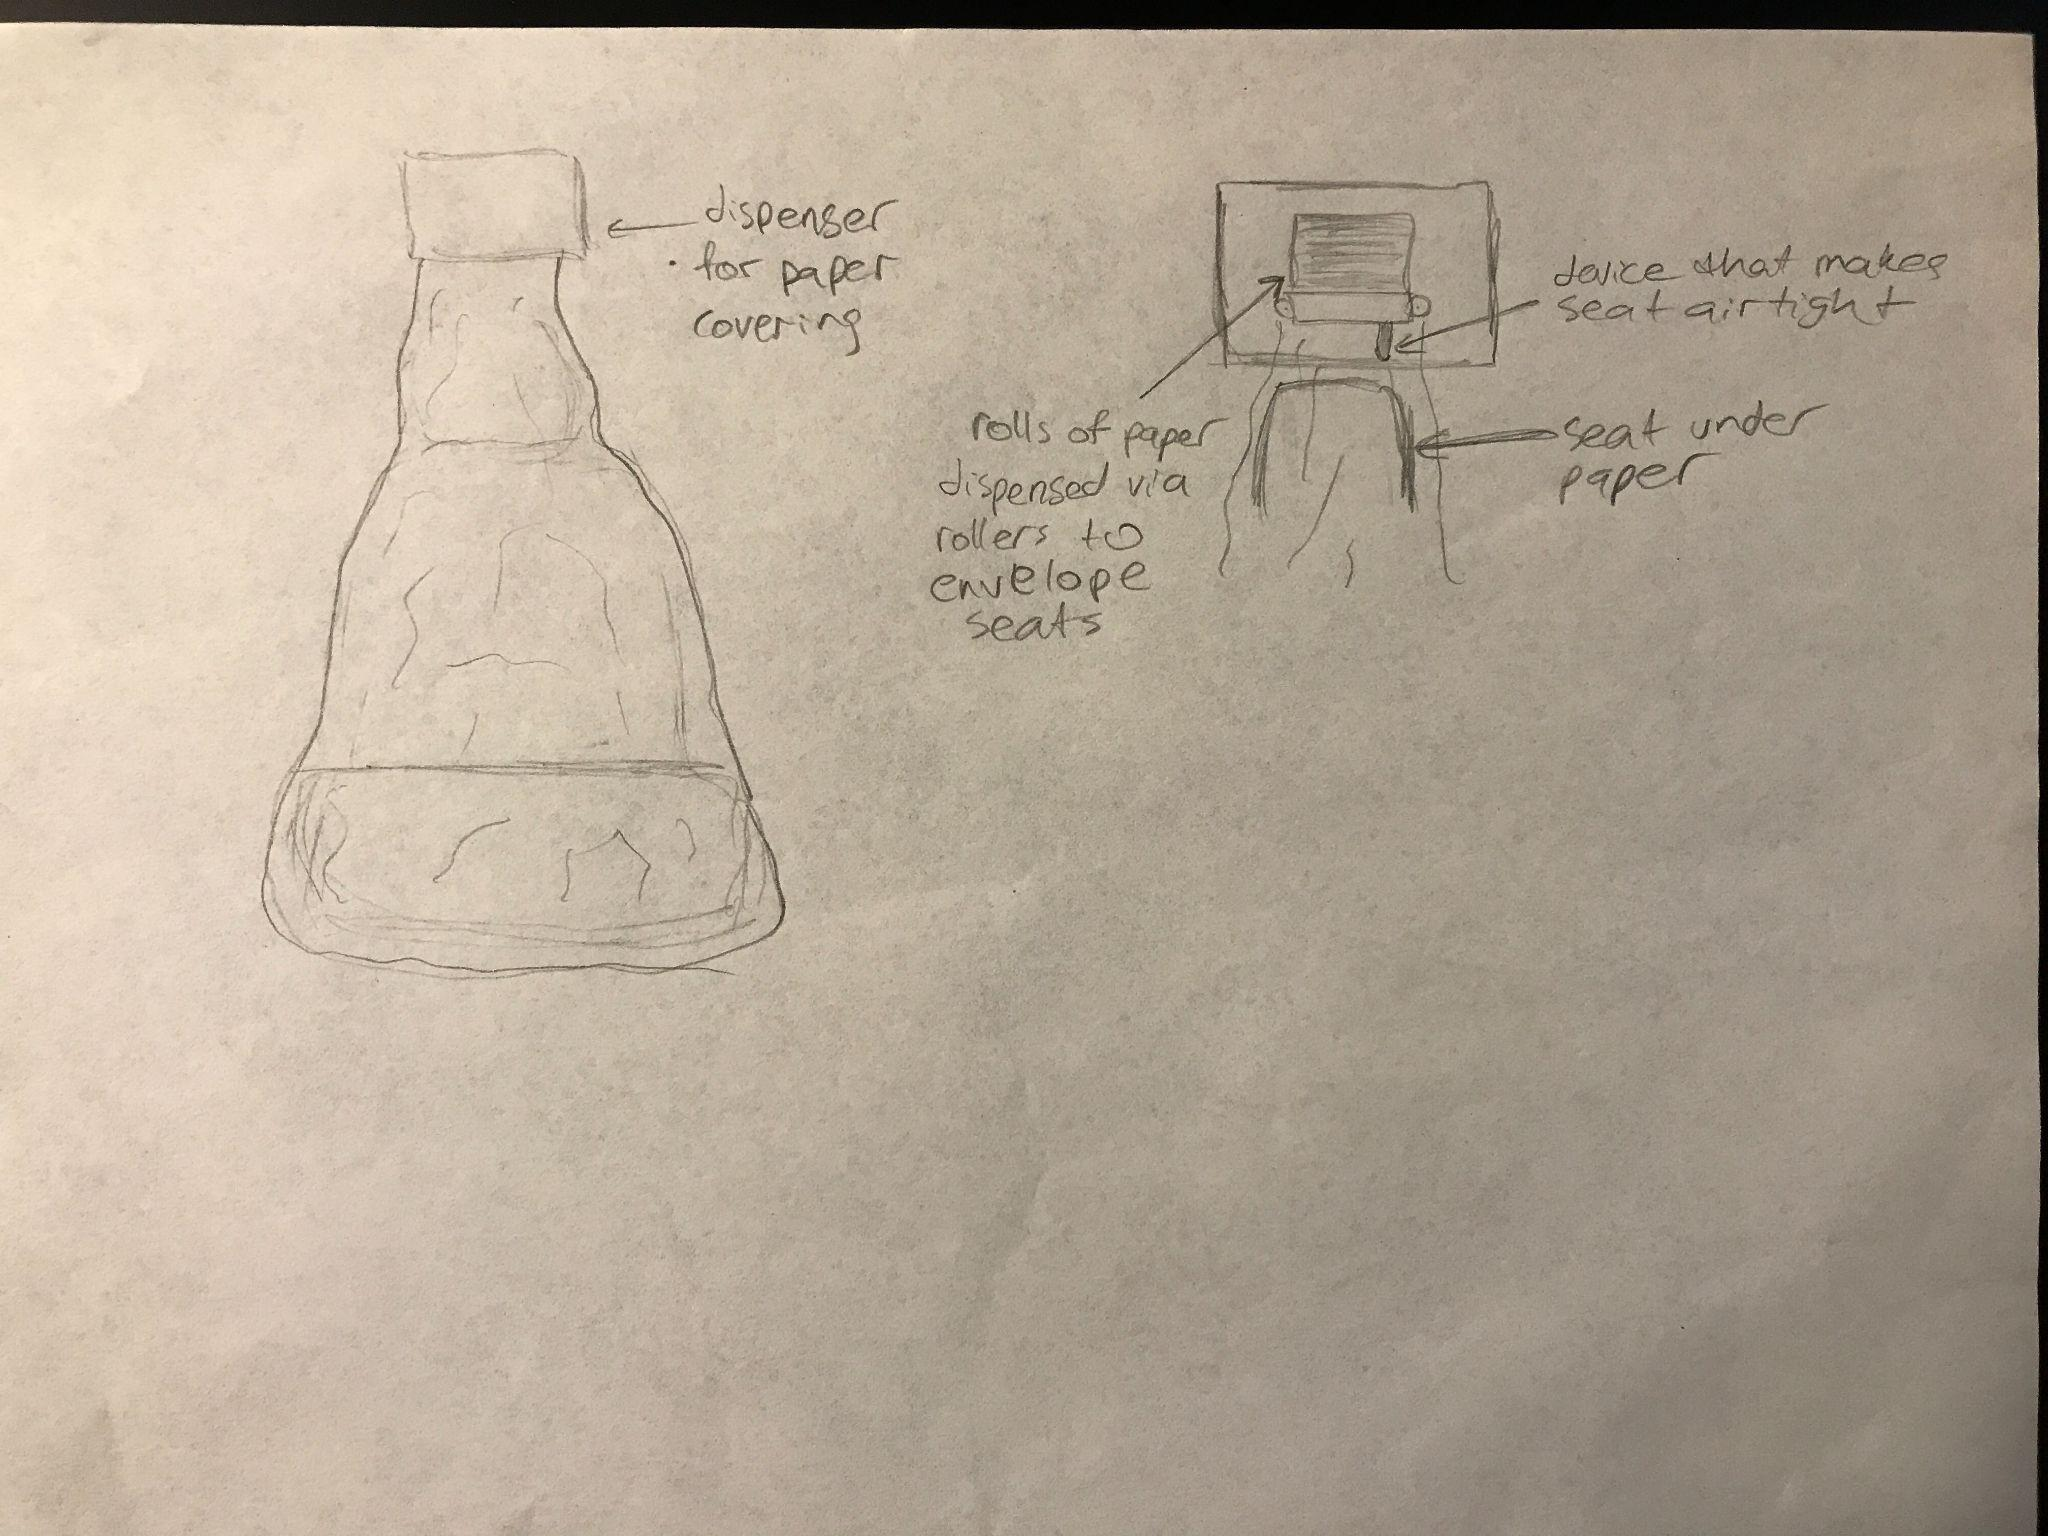 dispenser
for paper
covering
device that makes
seat airtight
rolls of paper
dispensed via
rollers to
envelope
seats
seat under
paper